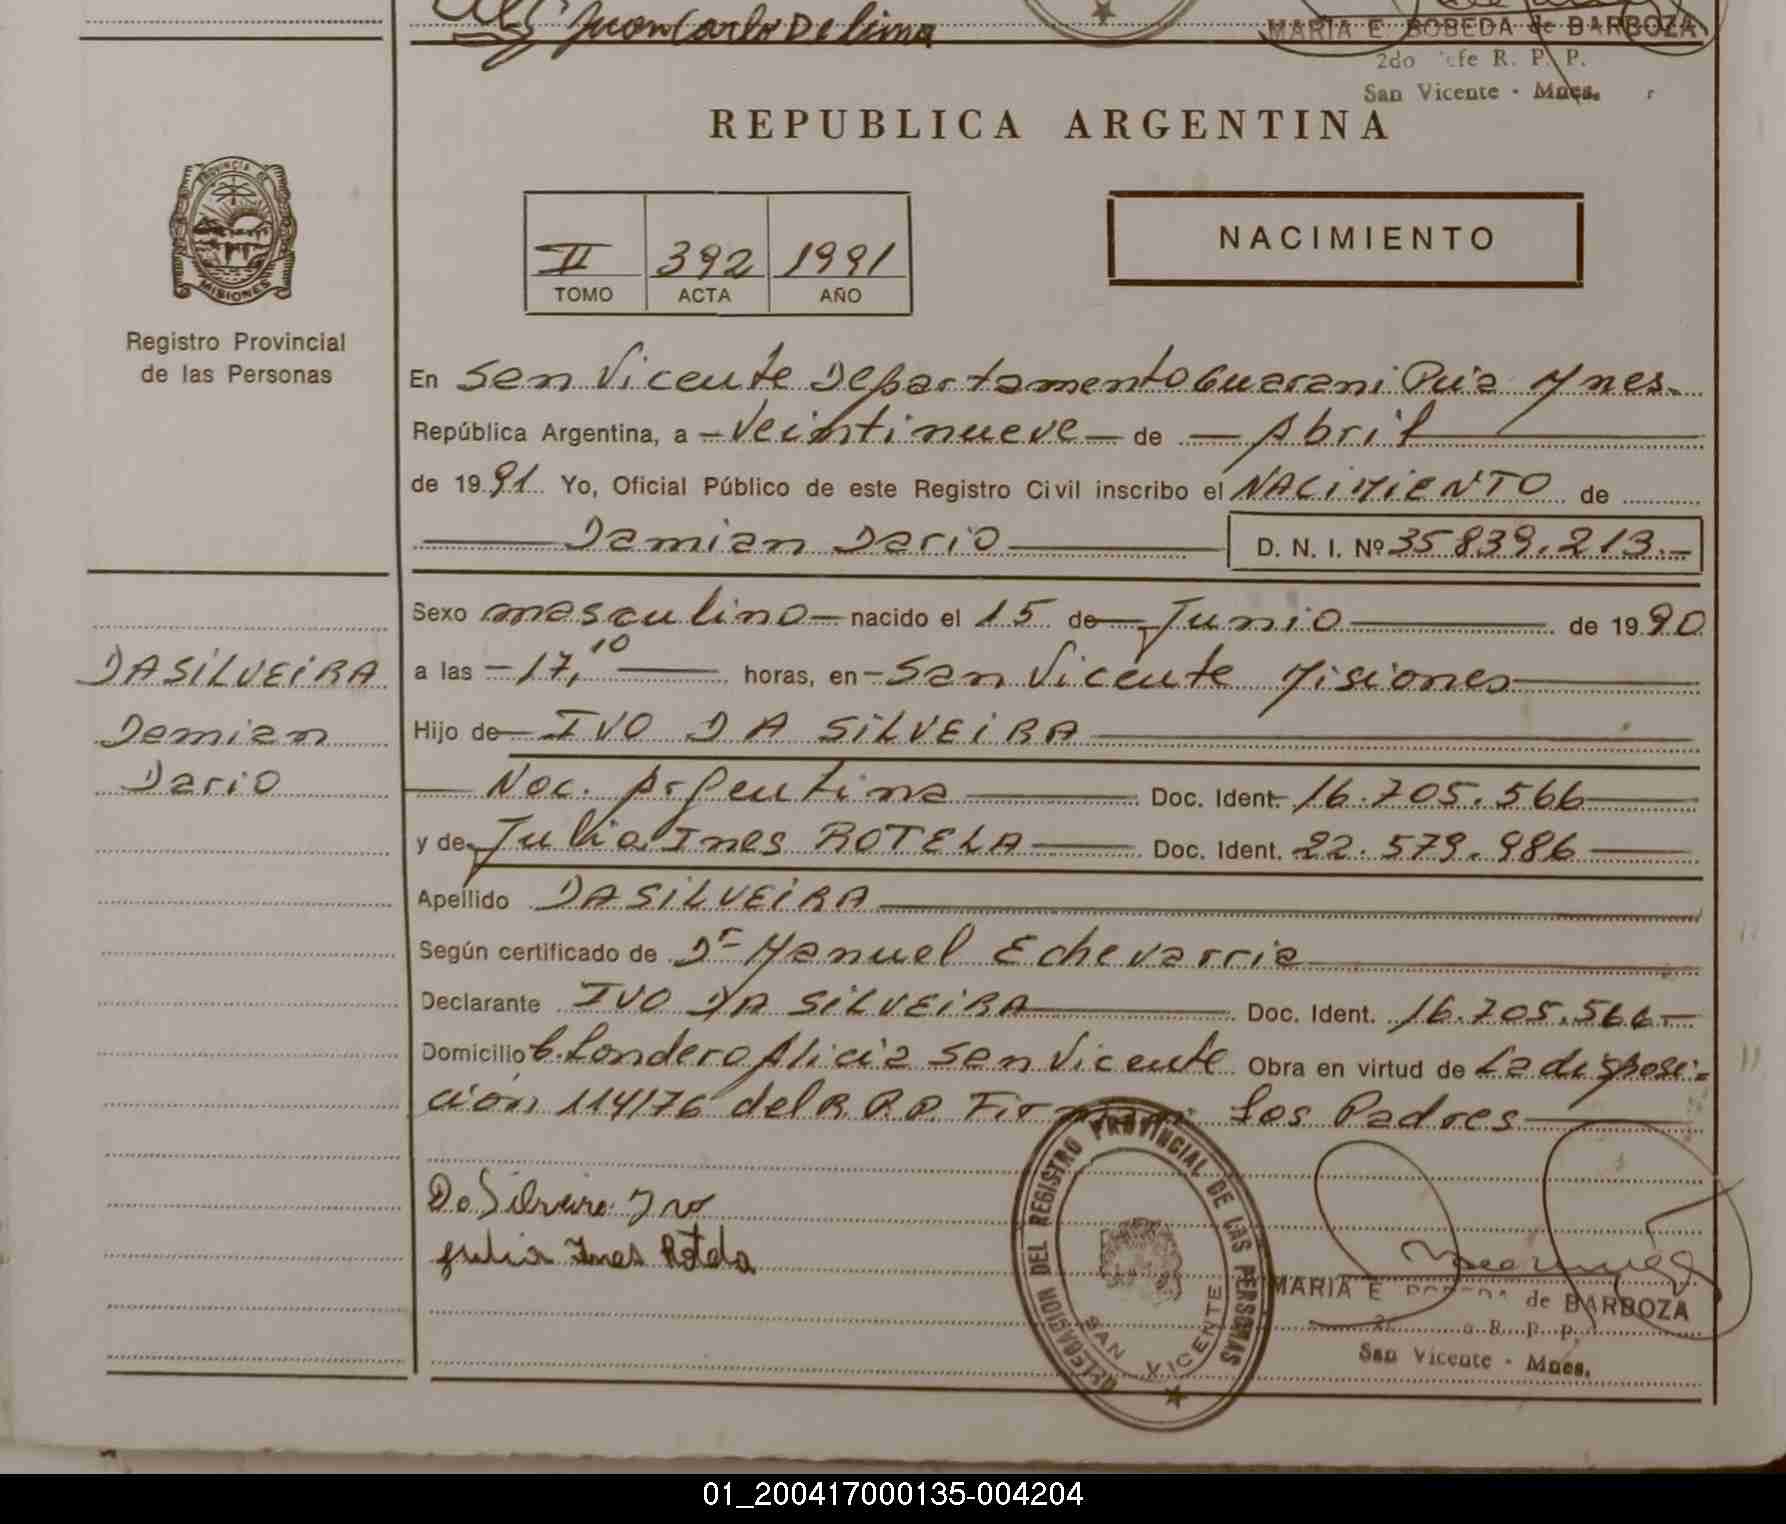 Juan Carlo De lima
MARIA E. BOBEDA de BARBOZA
2do Jefe R. P. P.
San Vicente - Mnes.
REPUBLICA ARGENTINA
PROVINCIA DE
MISIONES
Registro Provincial
de las Personas
II 392 1991
TOMO ACTA AÑO
NACIMIENTO
En San Vicente Departamento Guarani Pcia Mnes.
República Argentina, a - Veintinueve - de - Abril
de 1991 Yo, Oficial Público de este Registro Civil inscribo el NACIMIENTO de
Damian Dario
D. N. I. Nº 35 839.213.-
DASILVEIRA
Damian
Dario
Sexo masculino - nacido el 15 de Junio de 1990
a las - 17,10 horas, en - San Vicente Misiones
Hijo de - IVO DA SILVEIRA
Nac. Argentina Doc. Ident. 16.705.566
y de Julia Ines ROTELA Doc. Ident. 22.579.986
Apellido DASILVEIRA
Según certificado de Dr Manuel Echevarria
Declarante IVO DA SILVEIRA Doc. Ident. 16.705.566-
Domicilio C. Londero Alicia San Vicente Obra en virtud de La disposi-
ción 114/76 del R.P.P. Firman Los Padres
Da Silveira Ivo
Julia Ines Rotela
DELEGACION DEL REGISTRO PROVINCIAL DE LAS PERSONAS
SAN VICENTE
MARIA E. BOBEDA de BARBOZA
R. P. P.
San Vicente - Mnes.
01_200417000135-004204